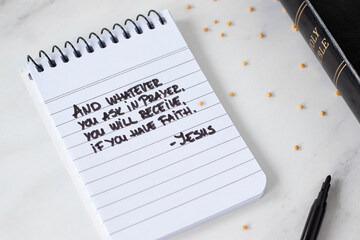 AND WHATEVER
YOU ASK IN PRAYER,
YOU WILL RECEIVE,
IF YOU HAVE FAITH.
- JESUS
HOLY BIBLE